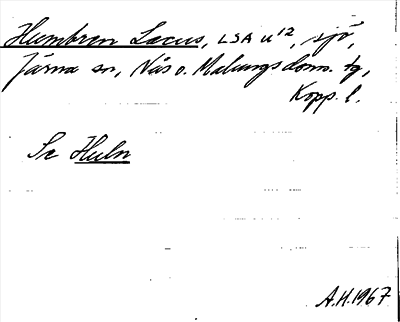 Humbren Lacus, LSA U¹², sjö,
Järna sn, Nås o. Malungs doms. tg,
Kopp. l.
Se Huln
A.H. 1967